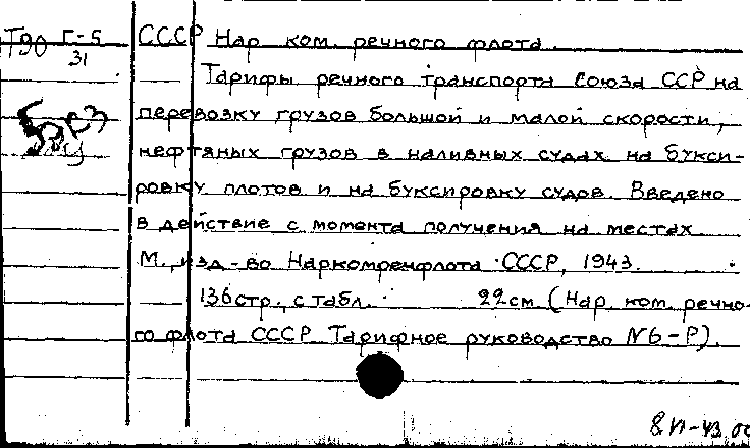 Т90 Г-5 СССР Нар. ком. речного флота.
31
Тарифы речного транспорта Союза ССР на
перевозку грузов большой и малой скорости,
нефтяных грузов в наливных судах на букси-
ровку плотов и на буксировку судов. Введено
в действие с момента получения на местах.
М., изд-во Наркомречфлота СССР, 1943.
136 стр., с табл. 22 см (Нар. ком. речно-
го флота СССР. Тарифное руководство №6-Р).